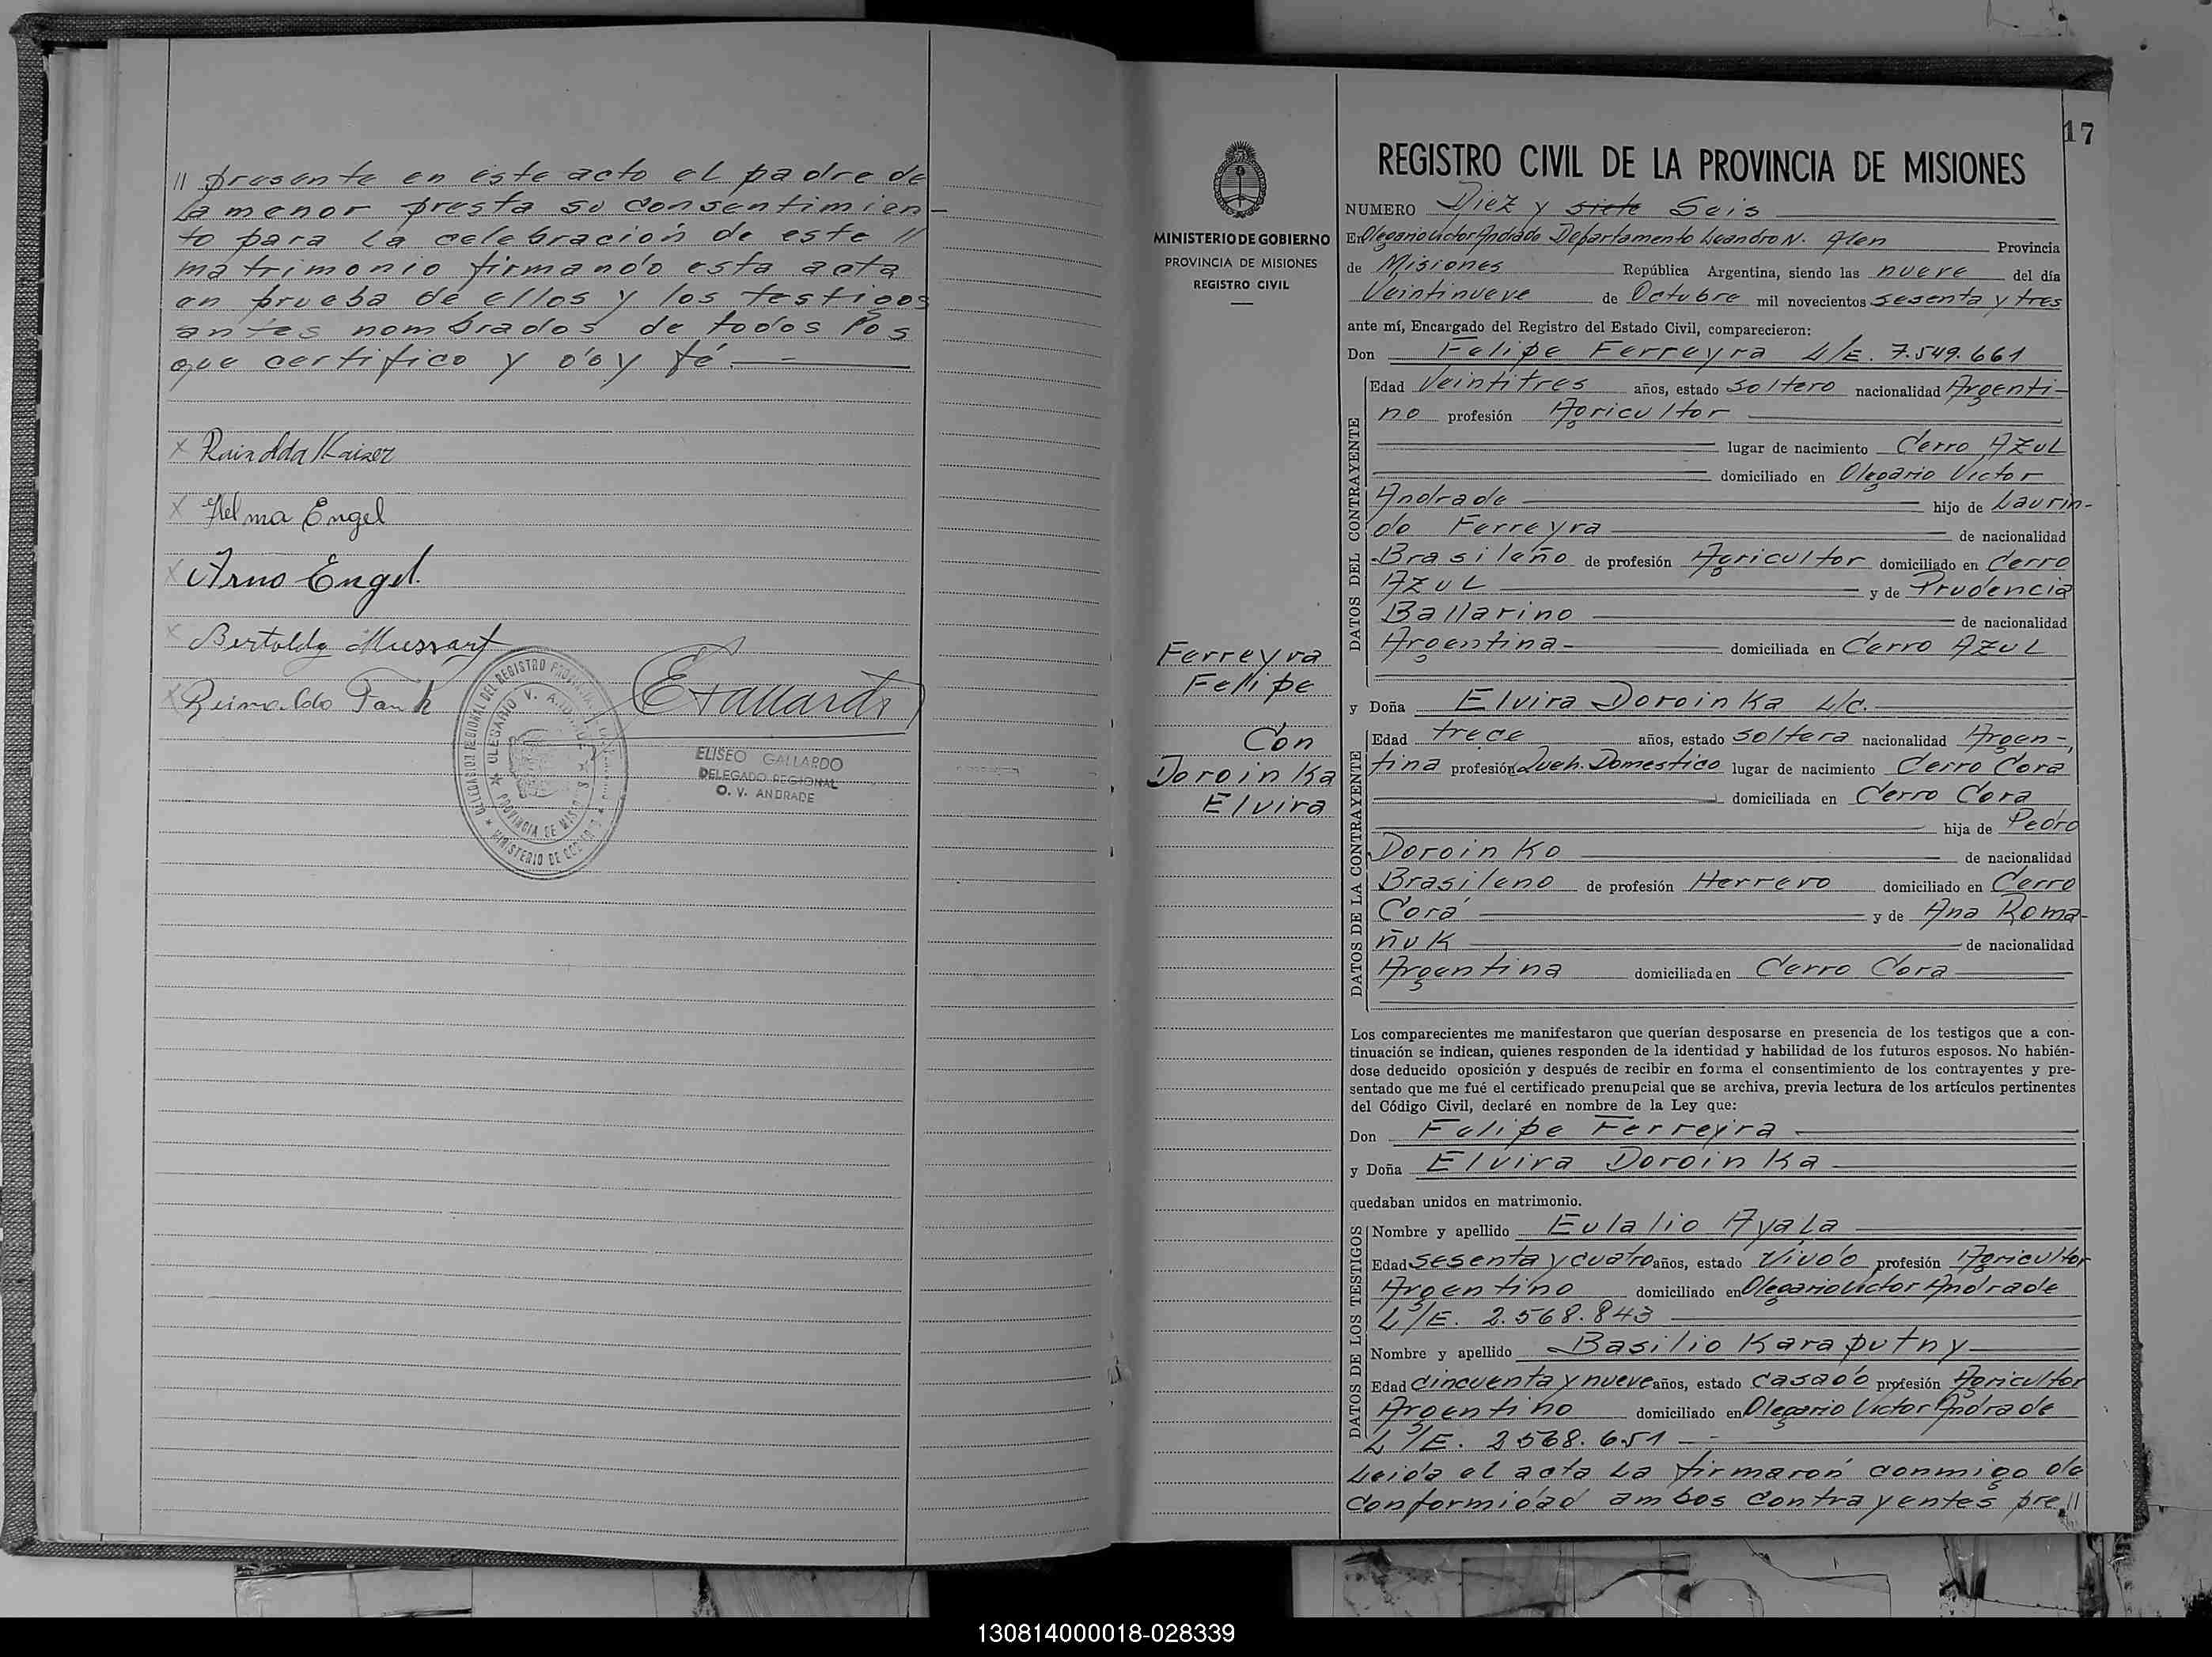 // presente en este acto el padre de
la menor presta su consentimien-
to para la celebración de este //
matrimonio firmando esta acta
en prueba de ellos y los testigos
antes nombrados de todos los
que certifico y doy fé.
x Rainolda Kaiser
x Helma Engel
x Arno Engel.
x Bertoldo
x Reinoldo
DELEGACION REGIONAL DEL REGISTRO PROVINCIAL
OLEGARIO V. ANDRADE
PROVINCIA DE MISIONES
MINISTERIO DE GOBIERNO
ELISEO GALLARDO
DELEGADO REGIONAL
O. V. ANDRADE
17
MINISTERIO DE GOBIERNO
PROVINCIA DE MISIONES
REGISTRO CIVIL
Ferreyra
Felipe
Con
Doroinka
Elvira
REGISTRO CIVIL DE LA PROVINCIA DE MISIONES
NUMERO Diez y siete Seis
En Olegario Victor Andrade Departamento Leandro N. Alen Provincia
de Misiones República Argentina, siendo las nueve del día
Veintinueve de Octubre mil novecientos sesenta y tres
ante mí, Encargado del Registro del Estado Civil, comparecieron:
Don Felipe Ferreyra L/E. 7.549.661
DATOS DEL CONTRAYENTE
Edad Veintitres años, estado soltero nacionalidad Argenti-
no profesión Agricultor
lugar de nacimiento Cerro Azul
domiciliado en Olegario Victor
Andrade hijo de Laurin-
do Ferreyra de nacionalidad
Brasileño de profesión Agricultor domiciliado en Cerro
Azul y de Prudencia
Ballarino de nacionalidad
Argentina domiciliada en Cerro Azul
y Doña Elvira Doroinka L/C.
DATOS DE LA CONTRAYENTE
Edad trece años, estado soltera nacionalidad Argen-
tina profesión Queh. Domestico lugar de nacimiento Cerro Cora
domiciliada en Cerro Cora
hija de Pedro
Doroinko de nacionalidad
Brasileno de profesión Herrero domiciliado en Cerro
Corá y de Ana Roma-
ñuk de nacionalidad
Argentina domiciliada en Cerro Cora
Los comparecientes me manifestaron que querían desposarse en presencia de los testigos que a con-
tinuación se indican, quienes responden de la identidad y habilidad de los futuros esposos. No habién-
dose deducido oposición y después de recibir en forma el consentimiento de los contrayentes y pre-
sentado que me fué el certificado prenupcial que se archiva, previa lectura de los artículos pertinentes
del Código Civil, declaré en nombre de la Ley que:
Don Felipe Ferreyra
y Doña Elvira Doroinka
quedaban unidos en matrimonio.
DATOS DE LOS TESTIGOS
Nombre y apellido Eulalio Ayala
Edad sesenta y cuatro años, estado Viudo profesión Agricultor
Argentino domiciliado en Olegario Victor Andrade
L/E. 2.568.843
Nombre y apellido Basilio Karaputny
Edad cincuenta y nueve años, estado casado profesión Agricultor
Argentino domiciliado en Olegario Victor Andrade
L/E. 2568.651
Leida el acta la firmarón conmigo de
conformidad ambos contrayentes pre//
130814000018-028339